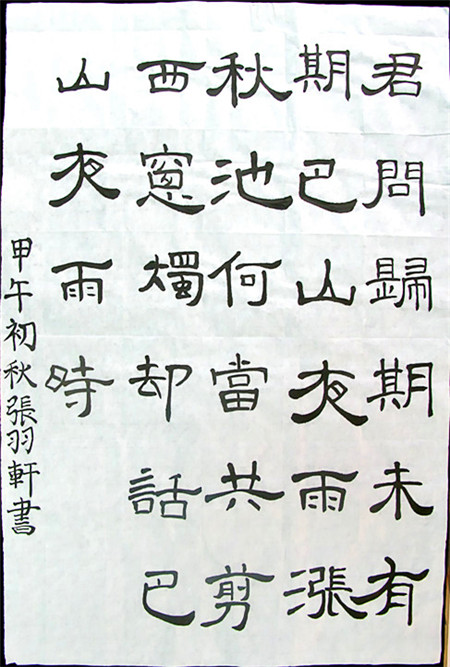 君問歸期未有
期巴山夜雨漲
秋池何當共剪
西窓燭却話巴
山夜雨時
甲午初秋張羽軒書